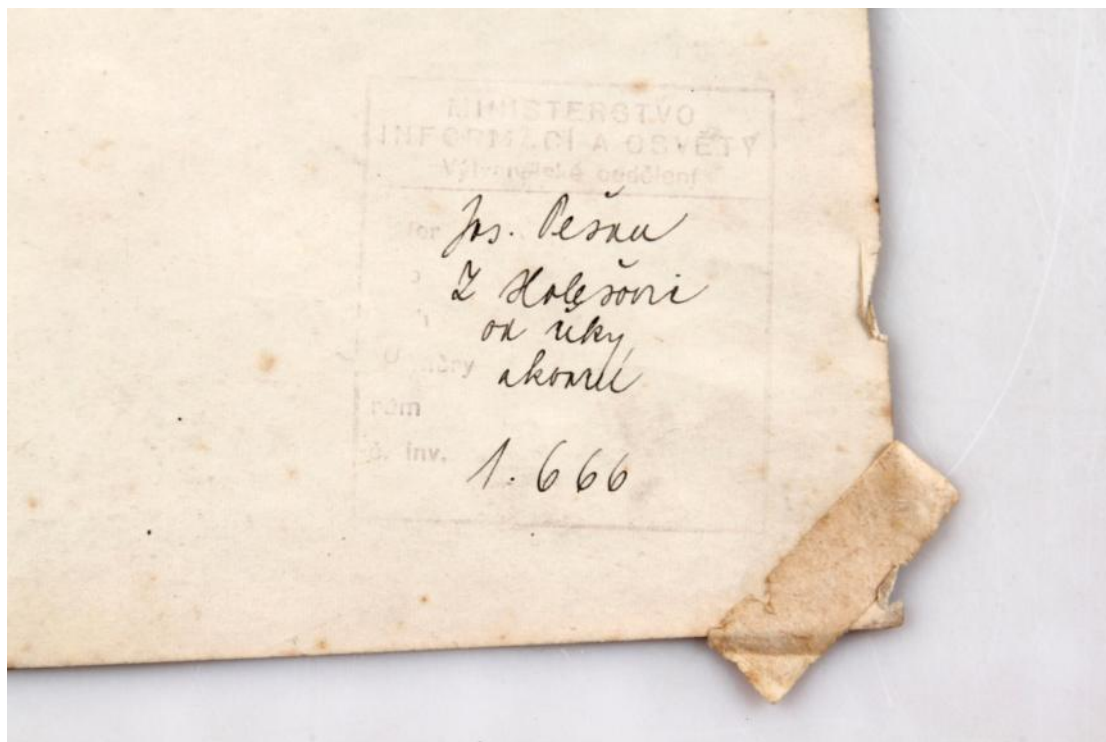 MINISTERSTVO
INFORMACÍ A OSVĚTY
Výtvarnické oddělení
Jos.
Z Holešovic
od řeky
akvarel
rám
č. inv. 1.666